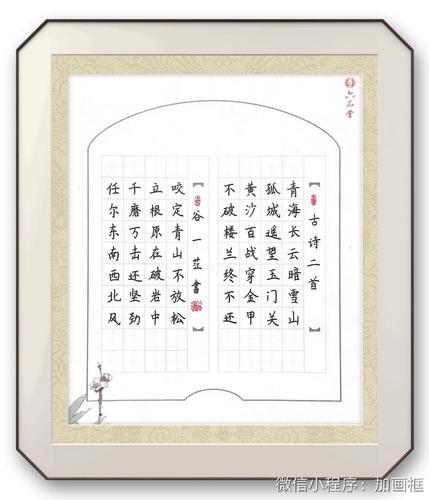 六品堂
古诗二首
青海长云暗雪山
孤城遥望玉门关
黄沙百战穿金甲
不破楼兰终不还
谷一苙書
咬定青山不放松
立根原在破岩中
千磨万击还坚劲
任尔东南西北风
微信小程序：加画框